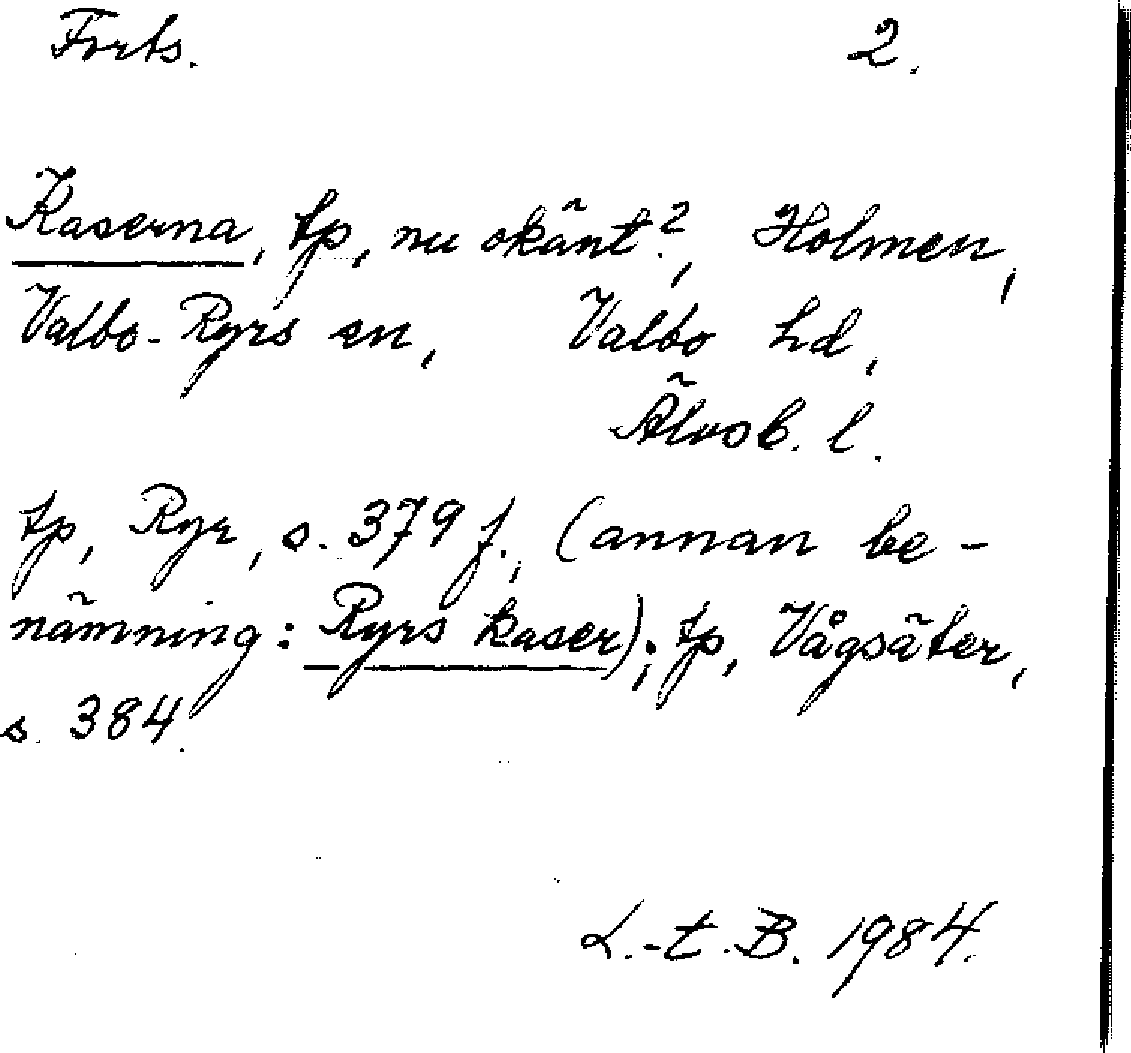 Forts. 2.
Kaserna, tp, nu okänt?, Holmen,
Valbo-Ryrs sn, Valbo hd,
Älvsb. l.
tp, Ryr, s. 379 f., (annan be-
nämning: Ryrs kaser); tp, Vågsäter,
s. 384.
L.-t. B. 1984.